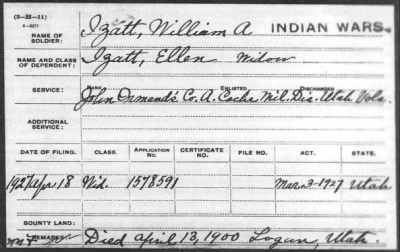 (3-M-11)
6-3271
NAME OF SOLDIER: Izatt, William A INDIAN WARS.
NAME AND CLASS OF DEPENDENT: Izatt, Ellen Widow
RANK ENLISTED DISCHARGED
SERVICE: John Ormand's Co. A. Cache Mil. Dis. Utah Vols.
ADDITIONAL SERVICE:
DATE OF FILING. CLASS. APPLICATION NO. CERTIFICATE NO. FILE NO. ACT. STATE.
1927 Apr 18 Wid. 1578591 Mar 3-1927 Utah
BOUNTY LAND:
REMARKS: Died April 13, 1900 Logan, Utah.